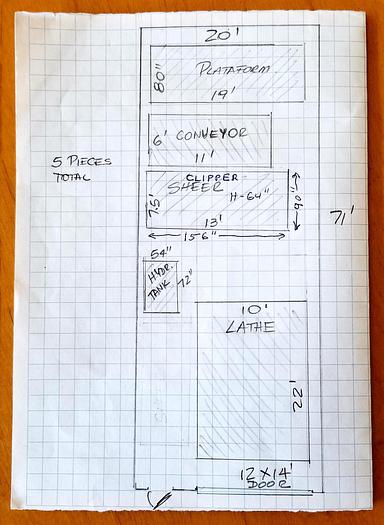 20'
80"
PLATAFORM
19'
6'
CONVEYOR
11'
5 PIECES
TOTAL
CLIPPER
SHEER
H-64"
7.5'
13'
90"
156"
71'
54"
HYDR.
TANK
72"
10'
LATHE
22'
12 X 14'
DOOR